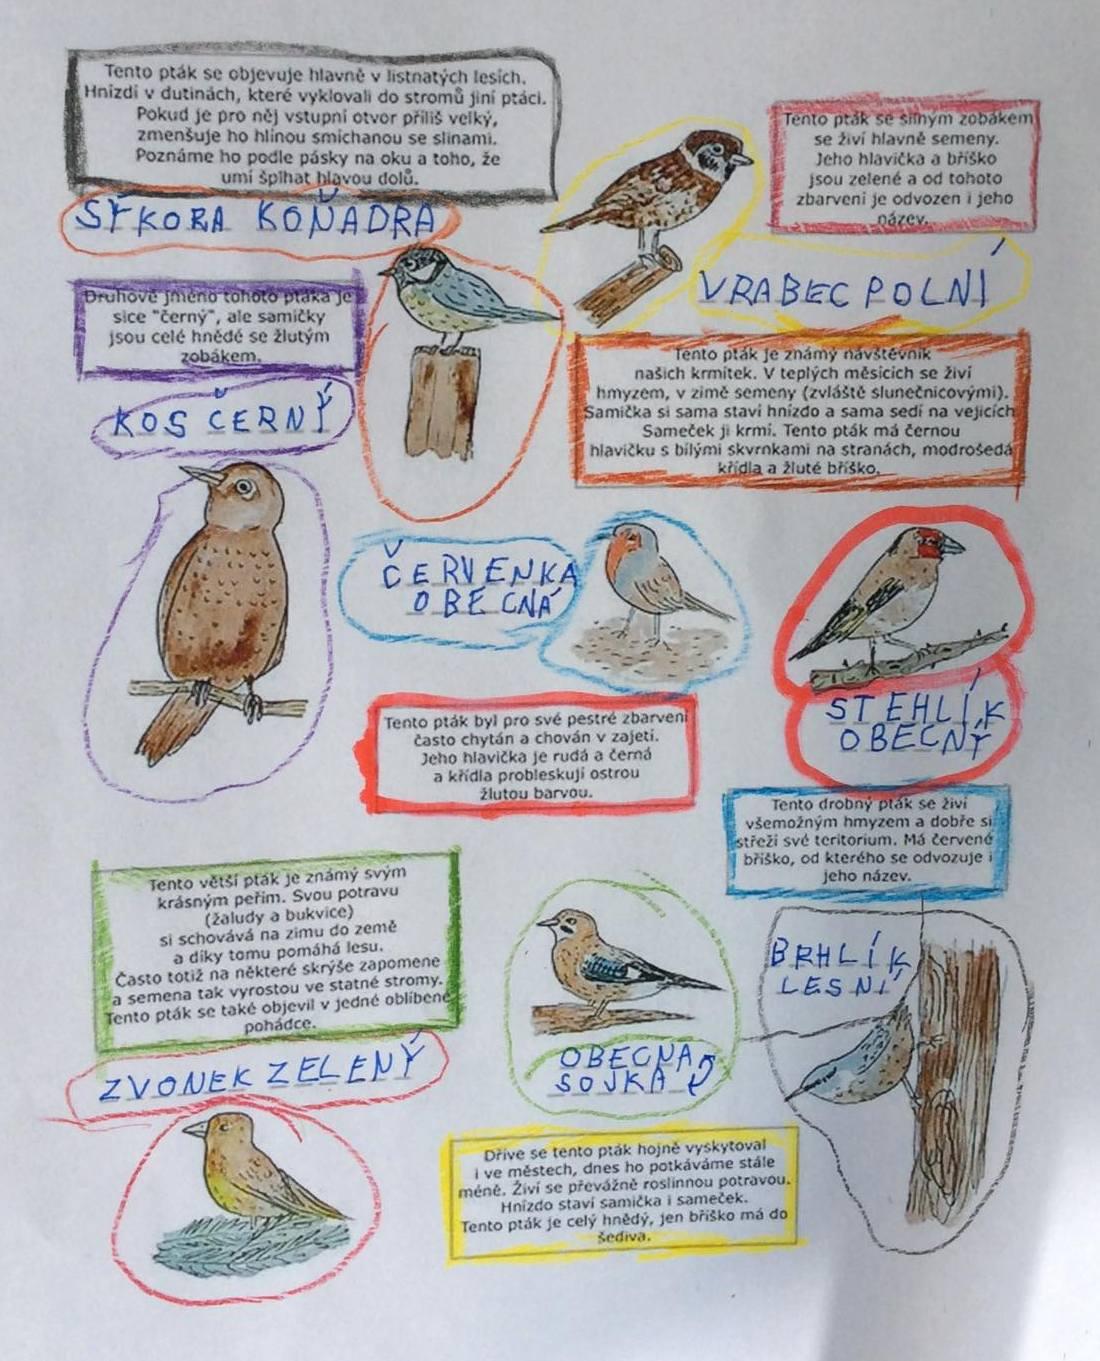 Tento pták se objevuje hlavně v listnatých lesích.
Hnízdí v dutinách, které vyklovali do stromů jiní ptáci.
Pokud je pro něj vstupní otvor příliš velký,
zmenšuje ho hlínou smíchanou se slinami.
Poznáme ho podle pásky na oku a toho, že
umí šplhat hlavou dolů.
SÝKORA KOŇADRA
Tento pták se silným zobákem
se živí hlavně semeny.
Jeho hlavička a bříško
jsou zelené a od tohoto
zbarvení je odvozen i jeho
název.
VRABEC POLNÍ
Druhové jméno tohoto ptáka je
sice "černý", ale samičky
jsou celé hnědé se žlutým
zobákem.
KOS ČERNÝ
Tento pták je známý návštěvník
našich krmítek. V teplých měsících se živí
hmyzem, v zimě semeny (zvláště slunečnicovými).
Samička si sama staví hnízdo a sama sedí na vejcích
Sameček ji krmí. Tento pták má černou
hlavičku s bílými skvrnkami na stranách, modrošedá
křídla a žluté bříško.
ČERVENKA
OBECNÁ
STEHLÍK
OBECNÝ
Tento pták byl pro své pestré zbarvení
často chytán a chován v zajetí.
Jeho hlavička je rudá a černá
a křídla probleskují ostrou
žlutou barvou.
Tento drobný pták se živí
všemožným hmyzem a dobře si
střeží své teritorium. Má červené
bříško, od kterého se odvozuje i
jeho název.
Tento větší pták je známý svým
krásným peřím. Svou potravu
(žaludy a bukvice)
si schovává na zimu do země
a díky tomu pomáhá lesu.
Často totiž na některé skrýše zapomene
a semena tak vyrostou ve statné stromy.
Tento pták se také objevil v jedné oblíbené
pohádce.
BRHLÍK
LESNÍ
ZVONEK ZELENÝ
OBECNA
SOJKA
Dříve se tento pták hojně vyskytoval
i ve městech, dnes ho potkáváme stále
méně. Živí se převážně roslinnou potravou.
Hnízdo staví samička i sameček.
Tento pták je celý hnědý, jen bříško má do
šediva.